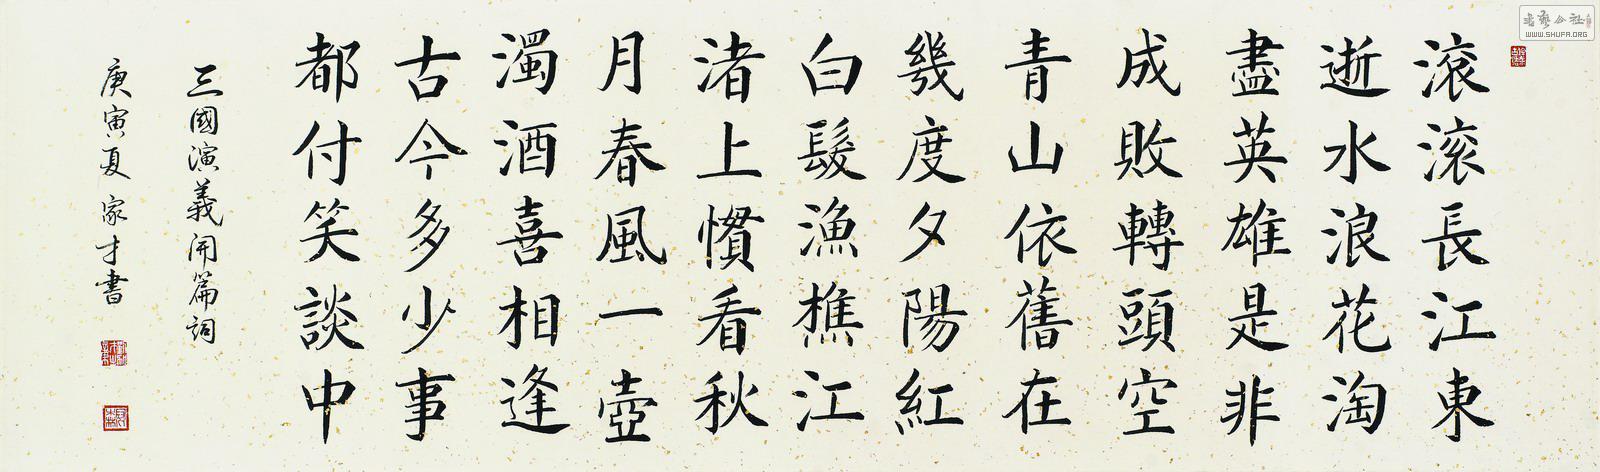 滾滾長江東
逝水浪花淘
盡英雄是非
成敗轉頭空
青山依舊在
幾度夕陽紅
白髮漁樵江
渚上慣看秋
月春風一壺
濁酒喜相逢
古今多少事
都付笑談中
三國演義開篇詞
庚寅夏 家才書
書藝公社
WWW.SHUFA.ORG